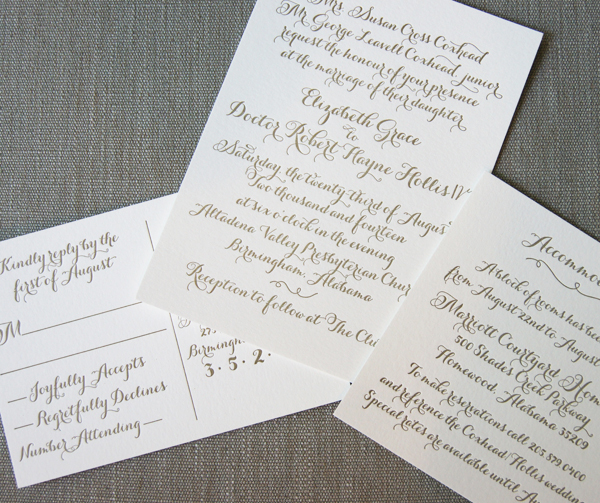 Mrs. Susan Cross Coxhead
Mr. George Leavell Coxhead, junior
request the honour of your presence
at the marriage of their daughter
Elizabeth Grace
to
Doctor Robert Hayne Hollis IV
Saturday, the twenty third of Augus
Two thousand and fourteen
at six o'clock in the evening
Altadena Valley Presbyterian Chur
Birmingham, Alabama
Reception to follow at The Clu
Kindly reply by the
first of August
M
Joyfully Accepts
Regretfully Declines
Number Attending
Birming
3·5·2·
Accommo
A block of rooms has bee
from August 22nd to August
Marriott Courtyard Hom
500 Shades Creek Parkway
Homewood, Alabama 35209
To make reservations call 205 879 0400
and reference the Coxhead/Hollis wedding
Special rates are available until